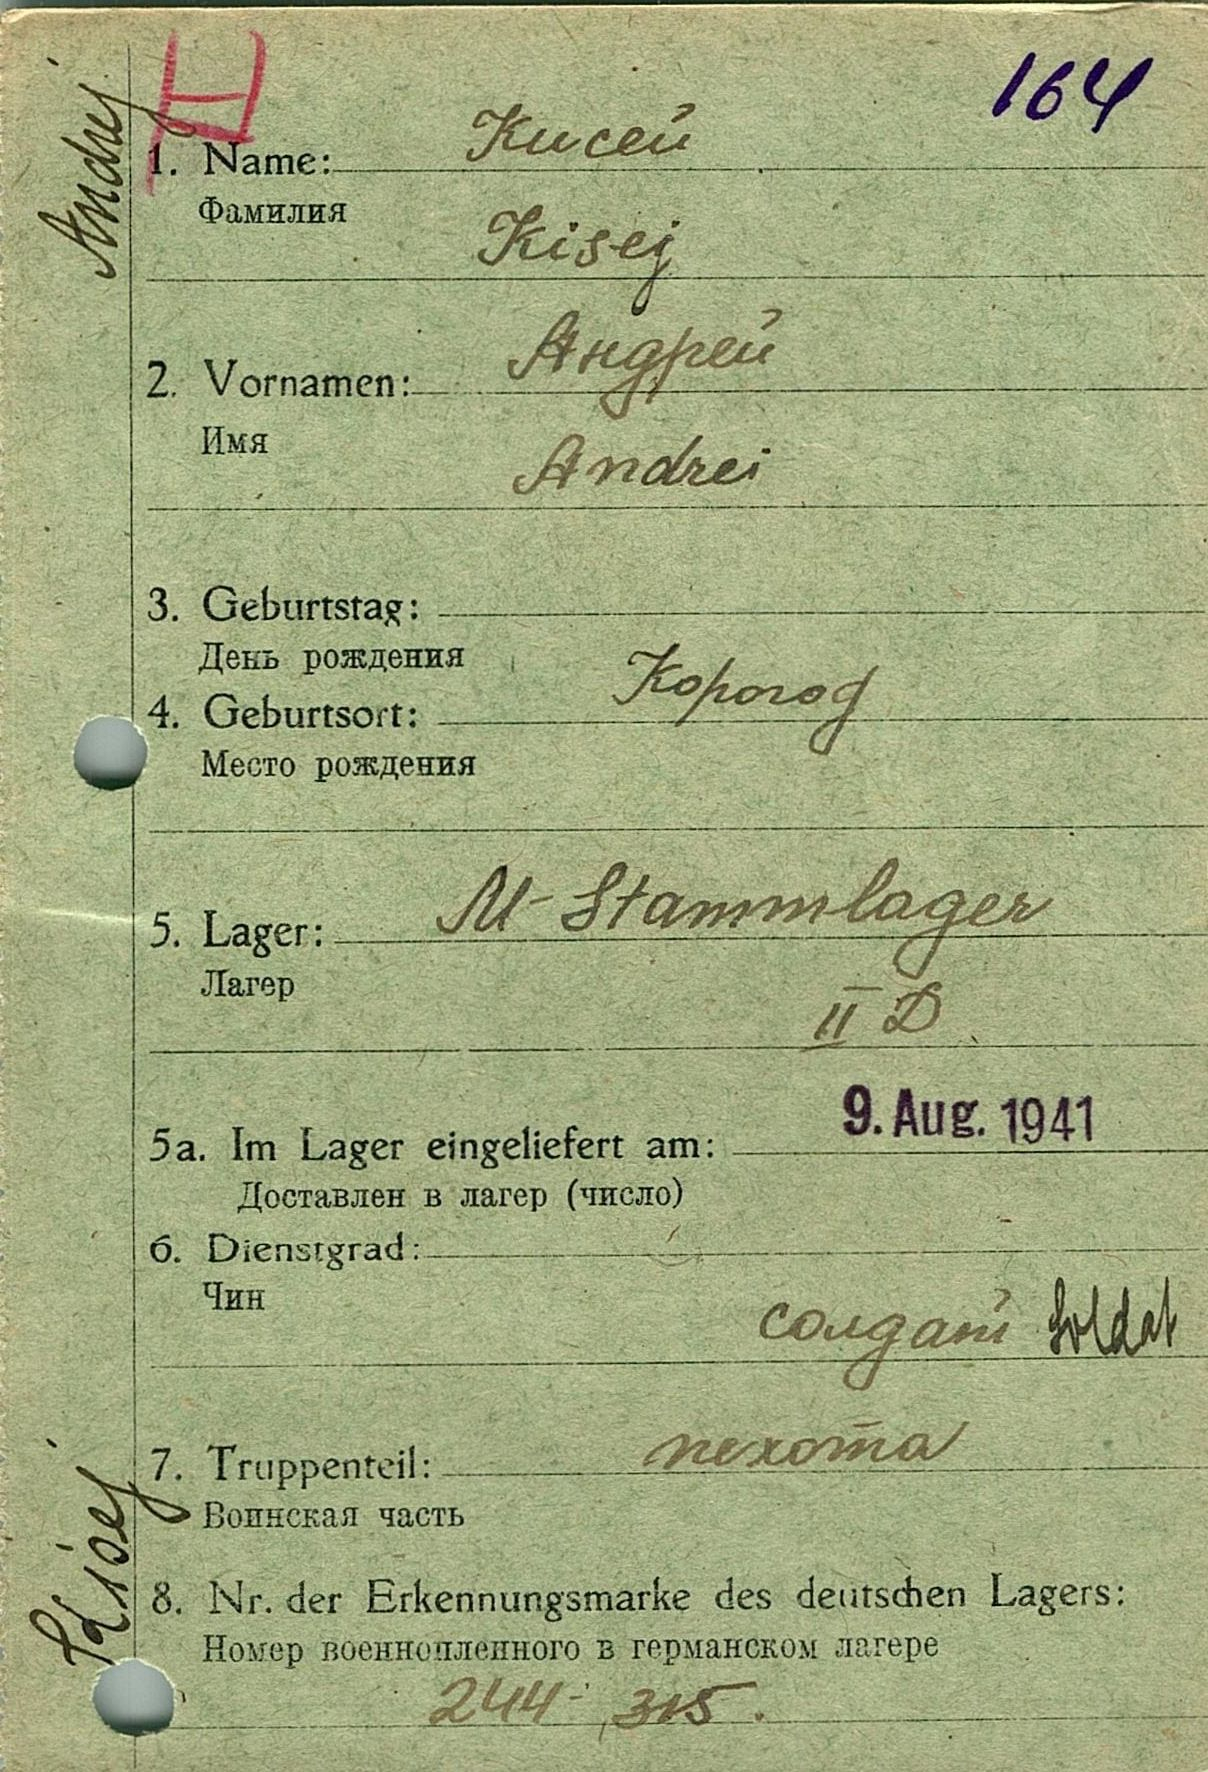 164
II
Andrej
1. Name: Кисей
Фамилия
Kisej
2. Vornamen: Андрей
Имя
Andrei
3. Geburtstag:
День рождения
4. Geburtsort: Корогод
Место рождения
5. Lager: M-Stammlager
Лагер
II D
5a. Im Lager eingeliefert am: 9. Aug. 1941
Доставлен в лагер (число)
6. Dienstgrad:
Чин
солдат Soldat
7. Truppenteil: пехота
Воинская часть
Kisej
8. Nr. der Erkennungsmarke des deutschen Lagers:
Номер военнопленного в германском лагере
244-315.